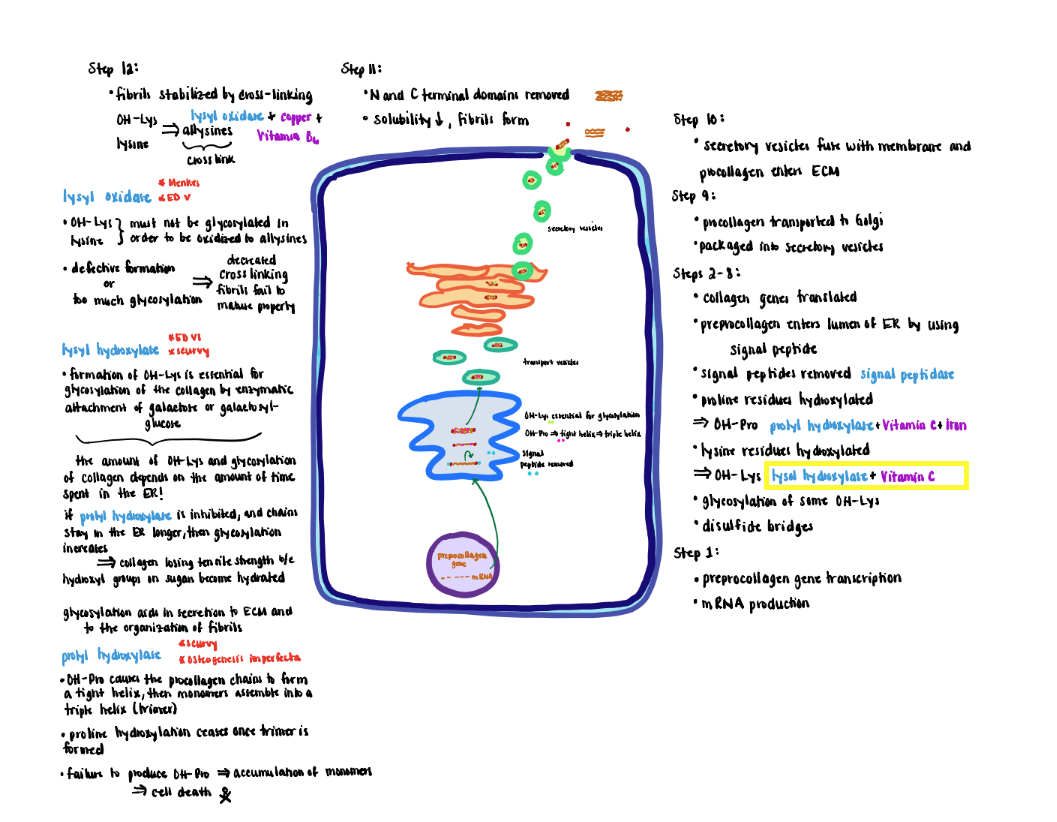 Step 12:
• fibrils stabilized by cross-linking
OH-Lys
lysine
⇒ lysyl oxidase + copper +
allysines
Vitamin B6
cross link
lysyl oxidase
* Menkes
* ED V
• OH-Lys
lysine
} must not be glycosylated in
order to be oxidized to allysines
• defective formation
or
too much glycosylation
⇒ decreased
cross linking
fibrils fail to
mature properly
lysyl hydroxylase
* ED VI
* scurvy
• formation of OH-Lys is essential for
glycosylation of the collagen by enzymatic
attachment of galactose or galactosyl-
glucose
the amount of OH-Lys and glycosylation
of collagen depends on the amount of time
spent in the ER!
if prolyl hydroxylase is inhibited, and chains
stay in the ER longer, then glycosylation
increases
⇒ collagen losing tensile strength b/c
hydroxyl groups on sugar become hydrated
glycosylation aids in secretion to ECM and
to the organization of fibrils
prolyl hydroxylase
* scurvy
* osteogenesis imperfecta
• OH-Pro causes the procollagen chains to form
a tight helix, then monomers assemble into a
triple helix (trimer)
• proline hydroxylation ceases once trimer is
formed
• failure to produce OH-Pro ⇒ accumulation of monomers
⇒ cell death
Step 11:
• N and C terminal domains removed
• solubility ↓, fibrils form
secretory vesicles
transport vesicles
OH-Lys essential for glycosylation
OH-Pro ⇒ tight helix ⇒ triple helix
signal
peptide removed
preprocollagen
gene
mRNA
Step 10:
• secretory vesicles fuse with membrane and
procollagen enters ECM
Step 9:
• procollagen transported to Golgi
• packaged into secretory vesicles
Steps 2-8:
• collagen genes translated
• preprocollagen enters lumen of ER by using
signal peptide
• signal peptides removed signal peptidase
• proline residues hydroxylated
⇒ OH-Pro prolyl hydroxylase + Vitamin C + iron
• lysine residues hydroxylated
⇒ OH-Lys lysol hydroxylase + Vitamin C
• glycosylation of some OH-Lys
• disulfide bridges
Step 1:
• preprocollagen gene transcription
• mRNA production